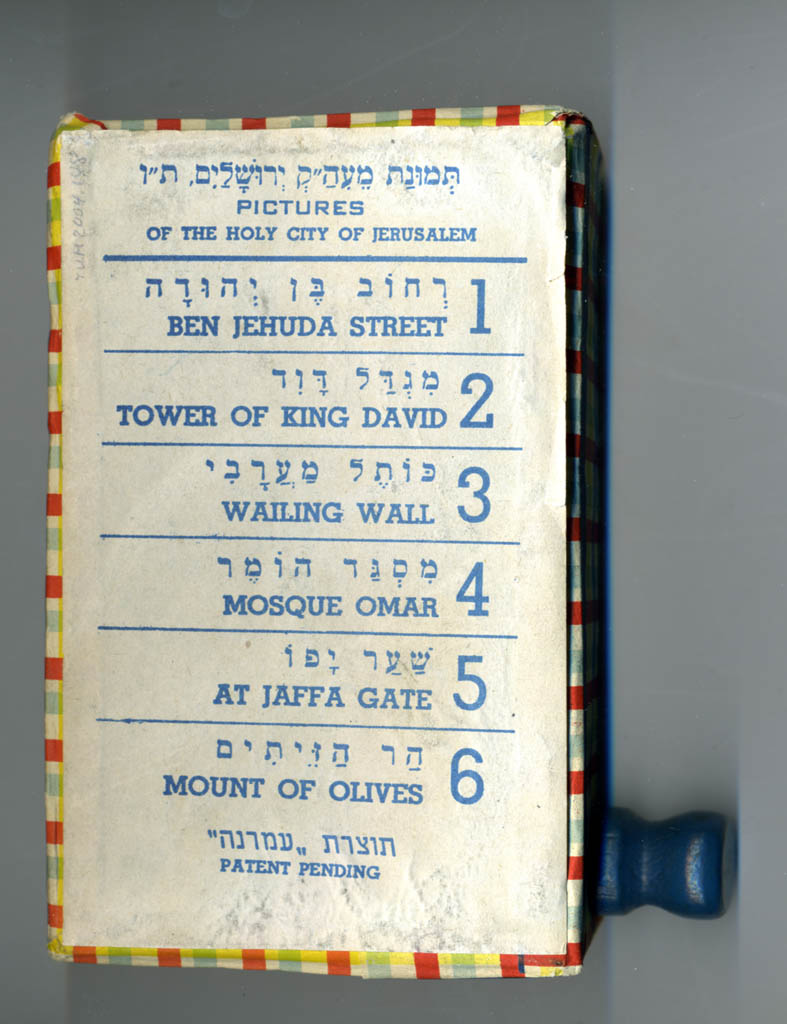 תְּמוּנַת מֵעִהַ״ק יְרוּשָׁלַיִם, ת״ו
PICTURES
OF THE HOLY CITY OF JERUSALEM
רְחוֹב בֶּן יְהוּדָה
BEN JEHUDA STREET
1
מִגְדַּל דָּוִד
TOWER OF KING DAVID
2
כּוֹתֶל מַעֲרָבִי
WAILING WALL
3
מִסְגַּד הוֹמֶר
MOSQUE OMAR
4
שַׁעַר יָפוֹ
AT JAFFA GATE
5
הַר הַזֵּיתִים
MOUNT OF OLIVES
6
תוצרת „עמרנה"
PATENT PENDING